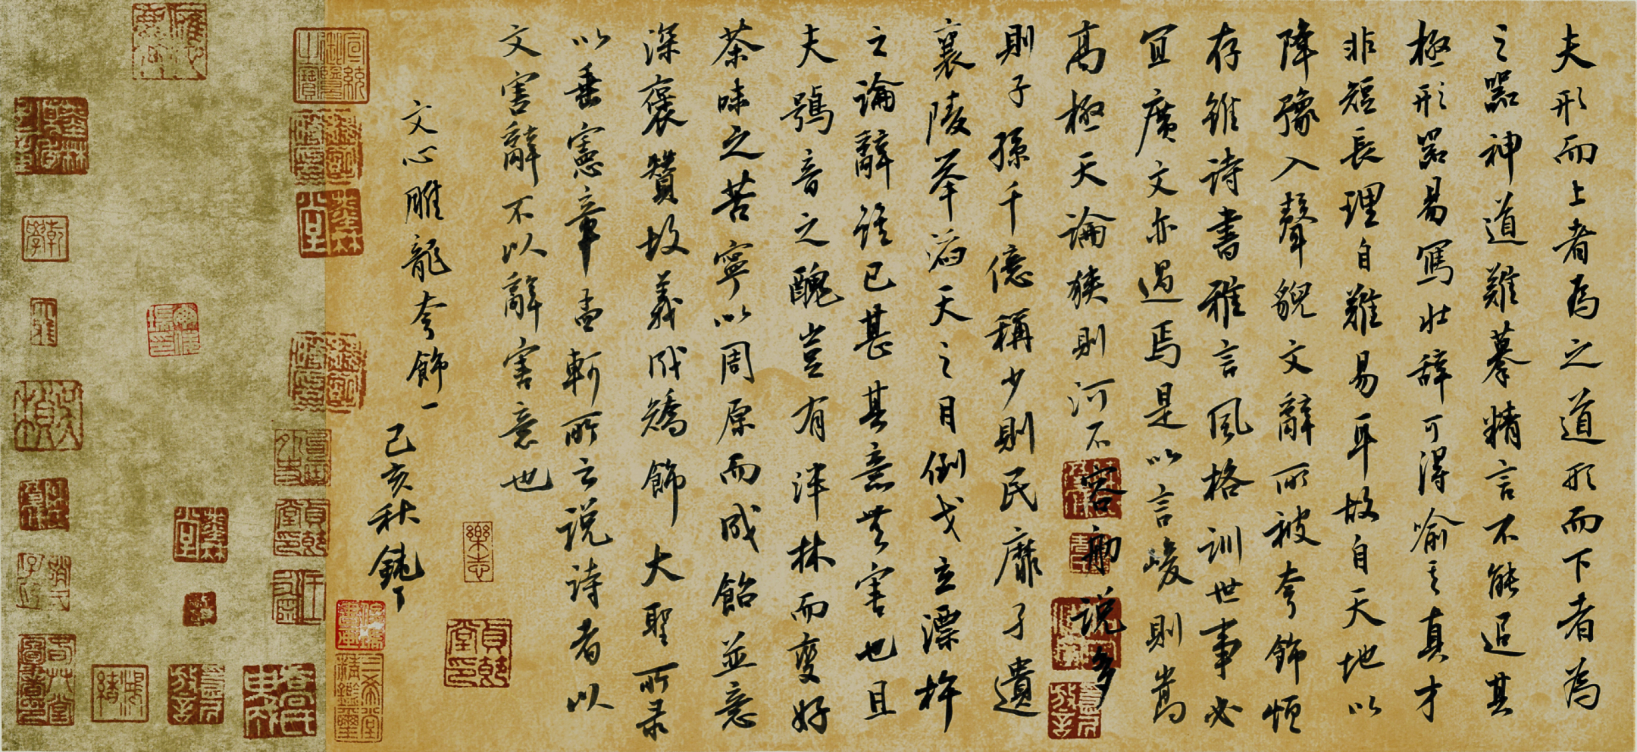 夫形而上者為之道形而下者為
之器神道難摹精言不能追其
極形器易寫壮辞可得喻其真才
非短長理自難易耳故自天地以
降豫入聲貌文辭所被夸飾恒
存雖诗書雅言風格训世事必
宜廣文亦過焉是以言峻則嵩
高極天論狹則河不容舠说多
則子孫千億稱少則民靡孑遺
襄陵举滔天之目倒戈立漂杵
之論辭雖已甚其意無害也且
夫鴞音之醜豈有泮林而變好
茶味之苦寧以周原而成飴並意
深褒贊故義成矯飾大聖所录
以垂憲章孟軻所云说诗者以
文害辭不以辭害意也
文心雕龍夸飾一 己亥秋鈍丁
樂志